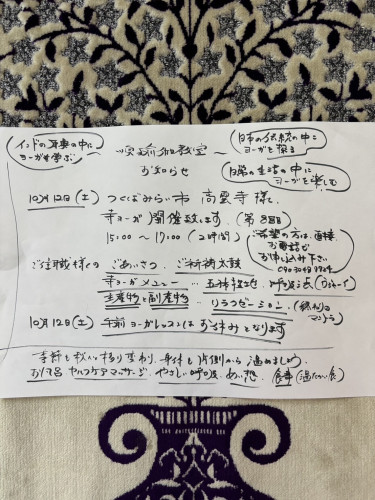 インドの事の中に
ヨーガを学ぶ
瑜伽教室
お知らせ
日本の伝統の中に
ヨーガを探る
日常の生活の中に
ヨーガを楽しむ
10月12日(土) つくばみらい市 高雲寺様
寺ヨーガ開催致します。(第88回)
15:00 〜 17:00 (2時間)
ご希望の方は、直接
お電話で
お申し込み下さい
ご住職様の ごあいさつ、ご祈祷太鼓
寺ヨーガメニュー … 五体投地 … 呼吸法
生産物と副産物 … リラクゼーション
マントラ
10月12日(土) 午前ヨーガレッスンは お休みとなります
季節も秋に移り変わり、身体も内側から温めましょう。
セルフケアマッサージ、やさしい呼吸、めい想、食事(温かい食)